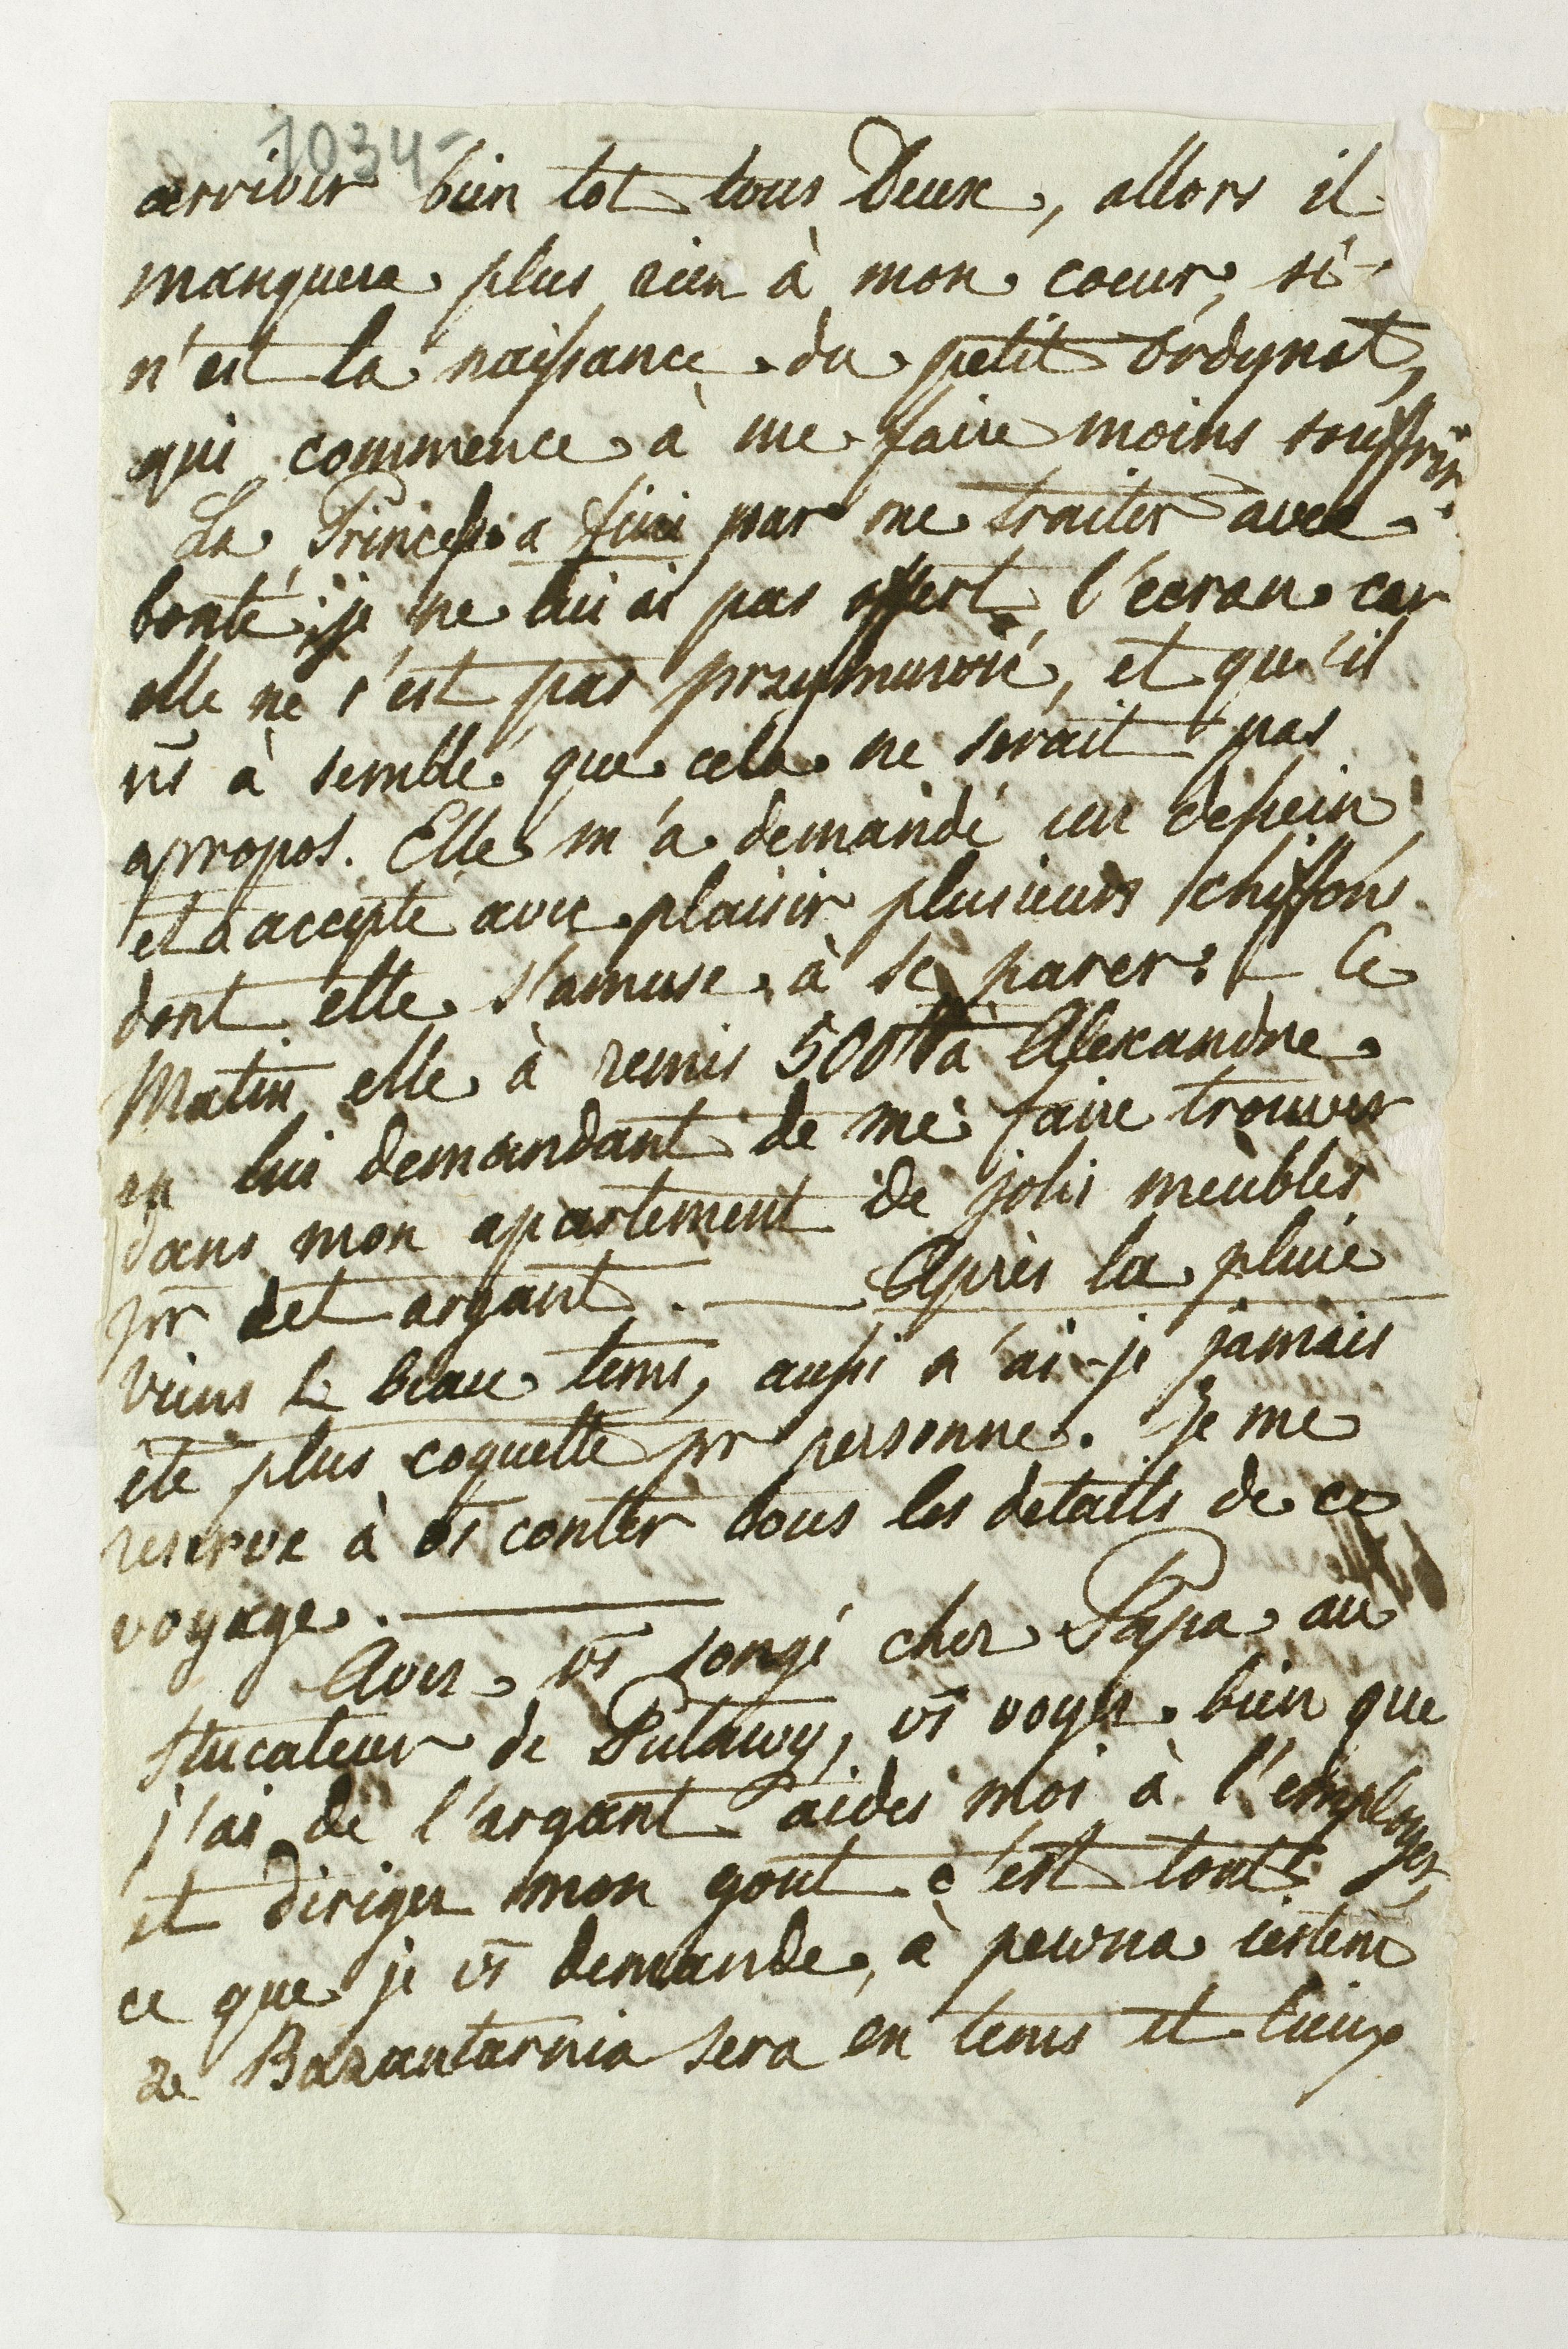 1034-
arriver bien tot tous Deux, allors il
manquera plus rien à mon coeur, si
n'est la naissance du petit Ordynat,
qui commence à me faire moins souffrir
La Princesse a fini par me traiter avec
bonté; je ne lui ai pas offert l'ecran car
elle ne s'est pas przymuwić, et qu'il
ns à semblé que cela ne serait pas
apropos. Elle m'a demandé un dessein
et a accepté avec plaisir plusieurs chiffons
dont elle s'amuse à se parer. Ce
Matin elle à remis 500 # à Alexandre
en lui demandant de me faire trouver
dans mon apartement de jolis meubles
pr cet argant. — Après la pluie
viens le beau tems, aussi n'ai-je jamais
été plus coquette pr personne. Je me
reserve à vs conter tous les details de ce
voyage. —
Avez vs songé cher Papa au
stucateur de Pulawy, vs voyez bien que
j'ai de l'argant aides moi à l'employer,
et diriger mon gout c'est tout
ce que je vs demande, à pewna iestem
ze Bazantarnia sera en tems et lieux